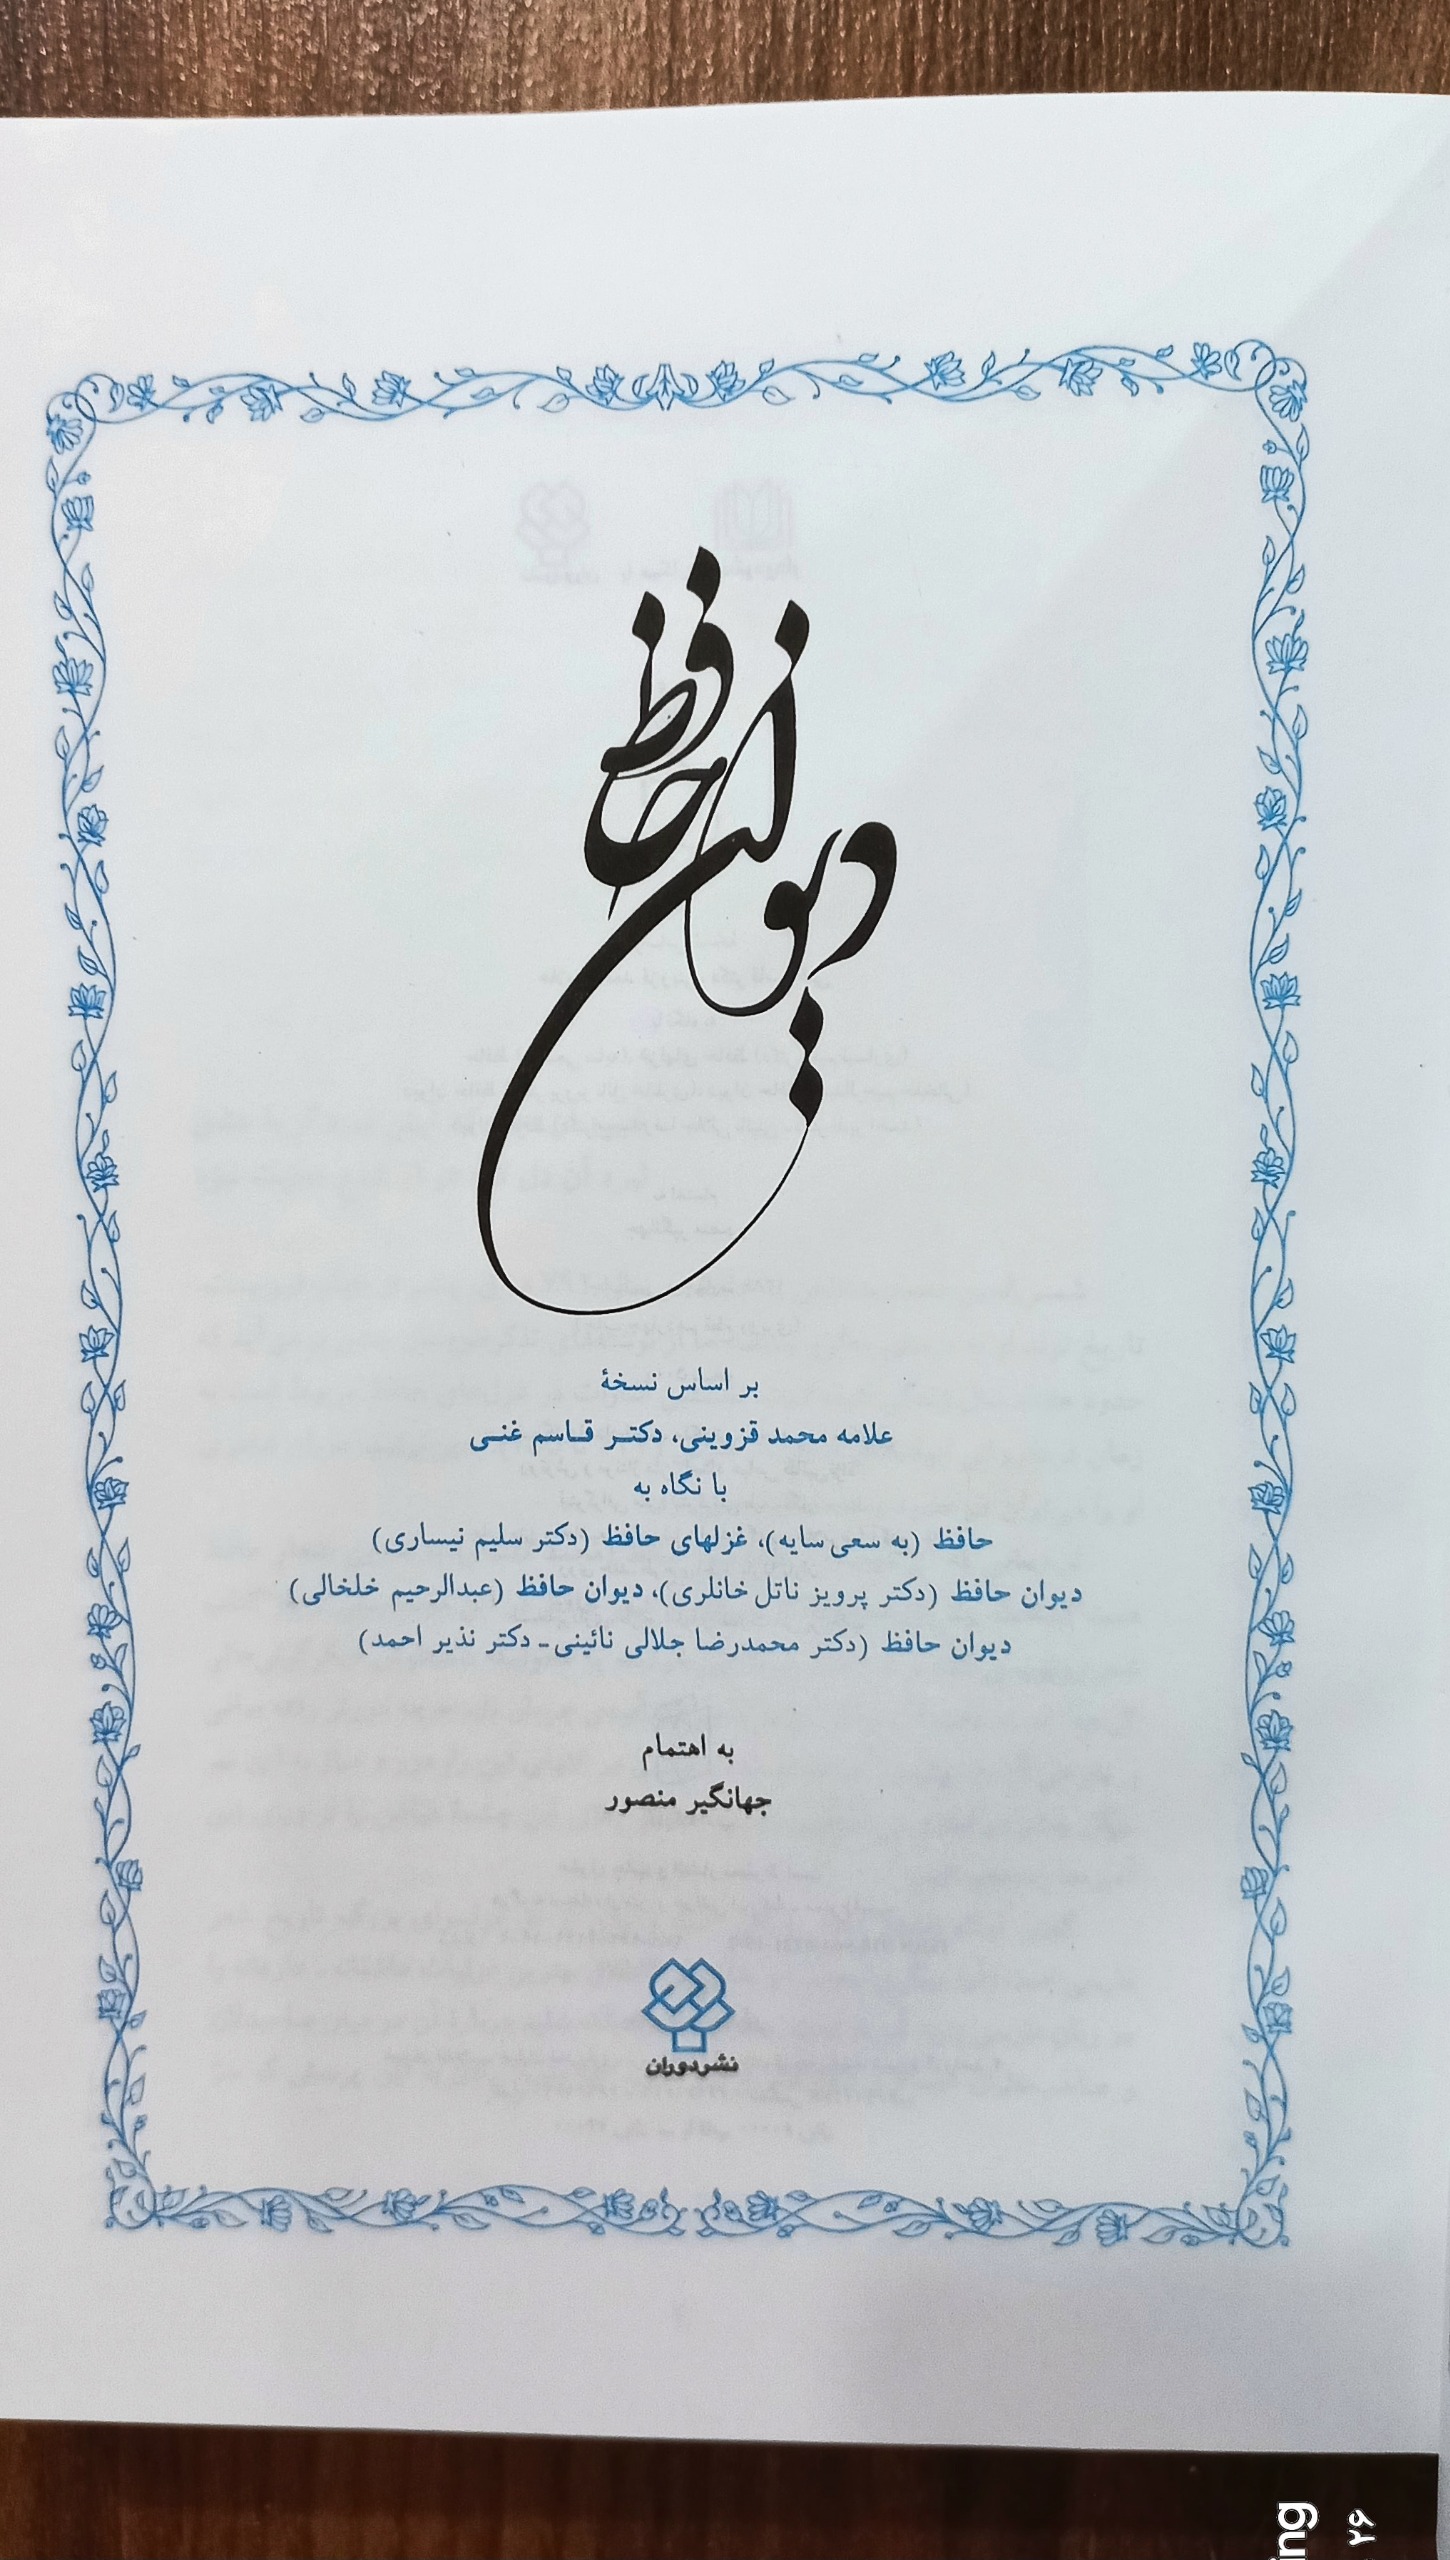 دیوان حافظ
بر اساس نسخهٔ
علامه محمد قزوینی، دکتر قاسم غنی
با نگاه به
حافظ (به سعی سایه)، غزلهای حافظ (دکتر سلیم نیساری)
دیوان حافظ (دکتر پرویز ناتل خانلری)، دیوان حافظ (عبدالرحیم خلخالی)
دیوان حافظ (دکتر محمدرضا جلالی نائینی - دکتر نذیر احمد)
به اهتمام
جهانگیر منصور
نشر دوران
ing
۲۶